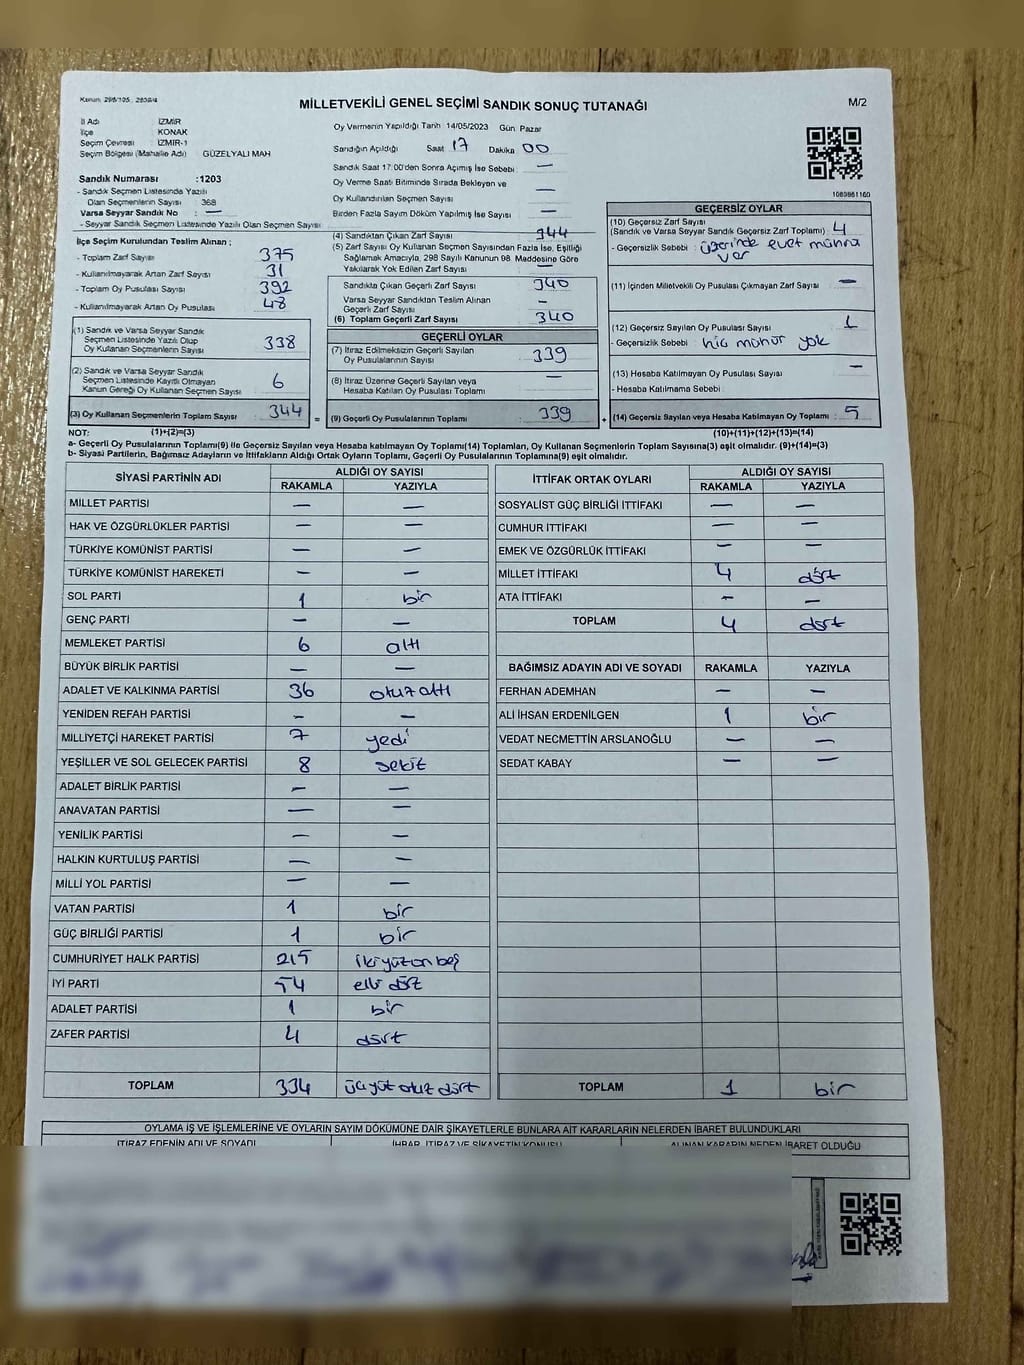 Kanun: 298/105 , 2839/4
MİLLETVEKİLİ GENEL SEÇİMİ SANDIK SONUÇ TUTANAĞI
M/2
İl Adı İZMİR
İlçe KONAK
Seçim Çevresi İZMİR-1
Seçim Bölgesi (Mahalle Adı) GÜZELYALI MAH
Sandık Numarası :1203
- Sandık Seçmen Listesinde Yazılı
Olan Seçmenlerin Sayısı 368
Varsa Seyyar Sandık No —
- Seyyar Sandık Seçmen Listesinde Yazılı Olan Seçmen Sayısı
Oy Vermenin Yapıldığı Tarih 14/05/2023 Gün Pazar
Sandığın Açıldığı Saat 17 Dakika 00
Sandık Saat 17:00'den Sonra Açılmış İse Sebebi —
Oy Verme Saati Bitiminde Sırada Bekleyen ve
Oy Kullandırılan Seçmen Sayısı —
Birden Fazla Sayım Döküm Yapılmış İse Sayısı —
1080861160
İlçe Seçim Kurulundan Teslim Alınan ;
- Toplam Zarf Sayısı 375
- Kullanılmayarak Artan Zarf Sayısı 31
- Toplam Oy Pusulası Sayısı 392
- Kullanılmayarak Artan Oy Pusulası 48
(1) Sandık ve Varsa Seyyar Sandık
Seçmen Listesinde Yazılı Olup
Oy Kullanan Seçmenlerin Sayısı 338
(2) Sandık ve Varsa Seyyar Sandık
Seçmen Listesinde Kayıtlı Olmayan
Kanun Gereği Oy Kullanan Seçmen Sayısı 6
(3) Oy Kullanan Seçmenlerin Toplam Sayısı 344 =
(4) Sandıktan Çıkan Zarf Sayısı 344
(5) Zarf Sayısı Oy Kullanan Seçmen Sayısından Fazla İse, Eşitliği
Sağlamak Amacıyla, 298 Sayılı Kanunun 98. Maddesine Göre
Yakılarak Yok Edilen Zarf Sayısı —
Sandıkta Çıkan Geçerli Zarf Sayısı 340
Varsa Seyyar Sandıktan Teslim Alınan
Geçerli Zarf Sayısı —
(6) Toplam Geçerli Zarf Sayısı 340
GEÇERLİ OYLAR
(7) İtiraz Edilmeksizin Geçerli Sayılan
Oy Pusulalarının Sayısı 339
(8) İtiraz Üzerine Geçerli Sayılan veya
Hesaba Katılan Oy Pusulası Toplamı —
(9) Geçerli Oy Pusulalarının Toplamı 339 +
GEÇERSİZ OYLAR
(10) Geçersiz Zarf Sayısı
(Sandık ve Varsa Seyyar Sandık Geçersiz Zarf Toplamı) 4
- Geçersizlik Sebebi : üzerinde evet mührü
var
(11) İçinden Milletvekili Oy Pusulası Çıkmayan Zarf Sayısı —
(12) Geçersiz Sayılan Oy Pusulası Sayısı 1
- Geçersizlik Sebebi : hiç mühür yok
(13) Hesaba Katılmayan Oy Pusulası Sayısı —
- Hesaba Katılmama Sebebi
(14) Geçersiz Sayılan veya Hesaba Katılmayan Oy Toplamı : 5
NOT: (1)+(2)=(3) (10)+(11)+(12)+(13)=(14)
a- Geçerli Oy Pusulalarının Toplamı(9) ile Geçersiz Sayılan veya Hesaba katılmayan Oy Toplamı(14) Toplamları, Oy Kullanan Seçmenlerin Toplam Sayısına(3) eşit olmalıdır. (9)+(14)=(3)
b- Siyasi Partilerin, Bağımsız Adayların ve İttifakların Aldığı Ortak Oyların Toplamı, Geçerli Oy Pusulalarının Toplamına(9) eşit olmalıdır.
SİYASİ PARTİNİN ADI ALDIĞI OY SAYISI
RAKAMLA YAZIYLA
MİLLET PARTİSİ — —
HAK VE ÖZGÜRLÜKLER PARTİSİ — —
TÜRKİYE KOMÜNİST PARTİSİ — —
TÜRKİYE KOMÜNİST HAREKETİ — —
SOL PARTİ 1 bir
GENÇ PARTİ — —
MEMLEKET PARTİSİ 6 altı
BÜYÜK BİRLİK PARTİSİ — —
ADALET VE KALKINMA PARTİSİ 36 otuz altı
YENİDEN REFAH PARTİSİ — —
MİLLİYETÇİ HAREKET PARTİSİ 7 yedi
YEŞİLLER VE SOL GELECEK PARTİSİ 8 sekiz
ADALET BİRLİK PARTİSİ — —
ANAVATAN PARTİSİ — —
YENİLİK PARTİSİ — —
HALKIN KURTULUŞ PARTİSİ — —
MİLLİ YOL PARTİSİ — —
VATAN PARTİSİ 1 bir
GÜÇ BİRLİĞİ PARTİSİ 1 bir
CUMHURİYET HALK PARTİSİ 215 iki yüz on beş
İYİ PARTİ 54 elli dört
ADALET PARTİSİ 1 bir
ZAFER PARTİSİ 4 dört
TOPLAM 334 üç yüz otuz dört
İTTİFAK ORTAK OYLARI ALDIĞI OY SAYISI
RAKAMLA YAZIYLA
SOSYALİST GÜÇ BİRLİĞİ İTTİFAKI — —
CUMHUR İTTİFAKI — —
EMEK VE ÖZGÜRLÜK İTTİFAKI — —
MİLLET İTTİFAKI 4 dört
ATA İTTİFAKI — —
TOPLAM 4 dört
BAĞIMSIZ ADAYIN ADI VE SOYADI RAKAMLA YAZIYLA
FERHAN ADEMHAN — —
ALİ İHSAN ERDENİLGEN 1 bir
VEDAT NECMETTİN ARSLANOĞLU — —
SEDAT KABAY — —
TOPLAM 1 bir
OYLAMA İŞ VE İŞLEMLERİNE VE OYLARIN SAYIM DÖKÜMÜNE DAİR ŞİKAYETLERLE BUNLARA AİT KARARLARIN NELERDEN İBARET BULUNDUKLARI
İTİRAZ EDENİN ADI VE SOYADI İHBAR, İTİRAZ VE ŞİKAYETİN KONUSU ALINAN KARARIN NEDEN İBARET OLDUĞU